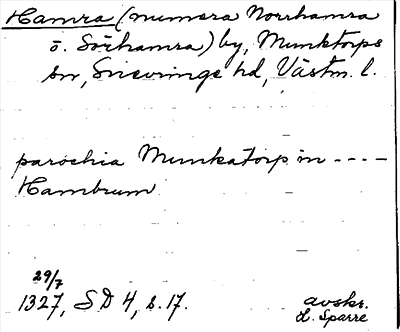 Hamra (numera Norrhamra
o. Sörhamra) by, Munktorps
sn, Snevringe hd, Västm. l.
parochia Munkatorp in ----
Hambrum
29/7
1327, SD 4, s. 17.
avskr.
L. Sparre